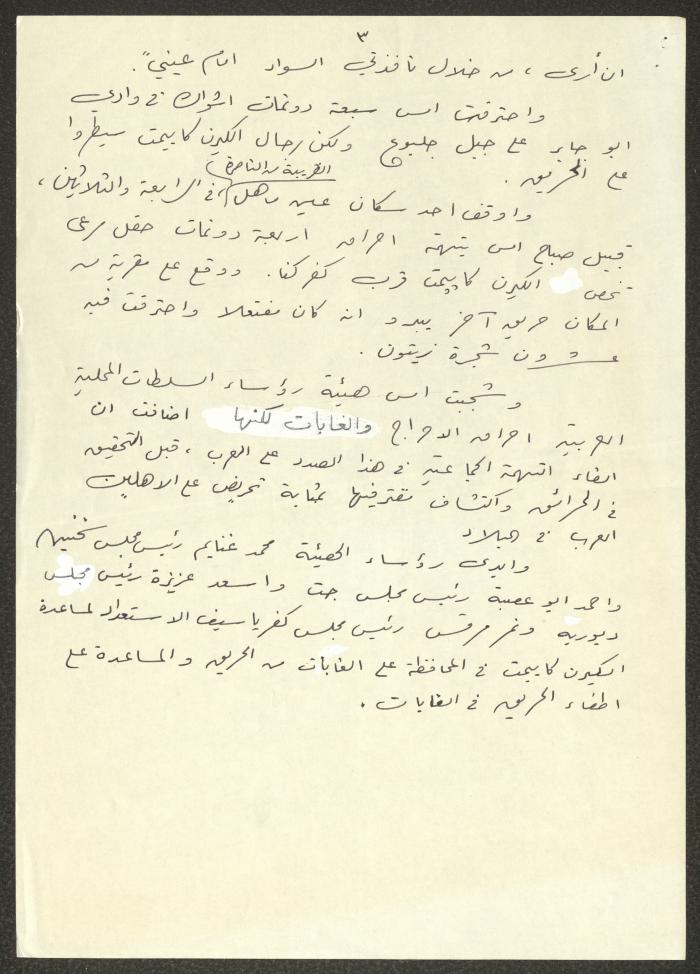 ٣
ان أرى ، من خلال نافذتي السواد امام عيني".
واحترقت امس سبعة دونمات اشواك في وادي
ابو جابر على جبل جلبوع ولكن رجال الكيرن كاييمت سيطروا
على الحريق .
القريبة من الناصرة
واوقف احد سكان عين ماهل ، في الرابعة والثلاثين ،
قبيل صباح امس بتهمة احراق اربعة دونمات حقل مرعى
تخص الكيرن كاييمت قرب كفر كنا. ووقع على مقربة من
المكان حريق آخر يبدو انه كان مفتعلا واحترقت فيه
عشرون شجرة زيتون .
وشجبت امس هيئة رؤساء السلطات المحلية
العربية احراق الاحراج والغابات لكنها اضافت ان
القاء التهمة الجماعية في هذا الصدد على العرب ، قبل التحقيق
في الحرائق واكتشاف مقترفيها بمثابة تحريض على الاهلين
العرب في البلاد
وابدى رؤساء الهيئة محمد غنايم رئيس مجلس سخنين
واحمد ابو عصبة رئيس مجلس جت واسعد عزيزة رئيس مجلس
دبورية ونمر مرقس رئيس مجلس كفر ياسيف الاستعداد لمساعدة
الكيرن كاييمت في المحافظة على الغابات من الحريق والمساعدة على
اطفاء الحريق في الغابات .